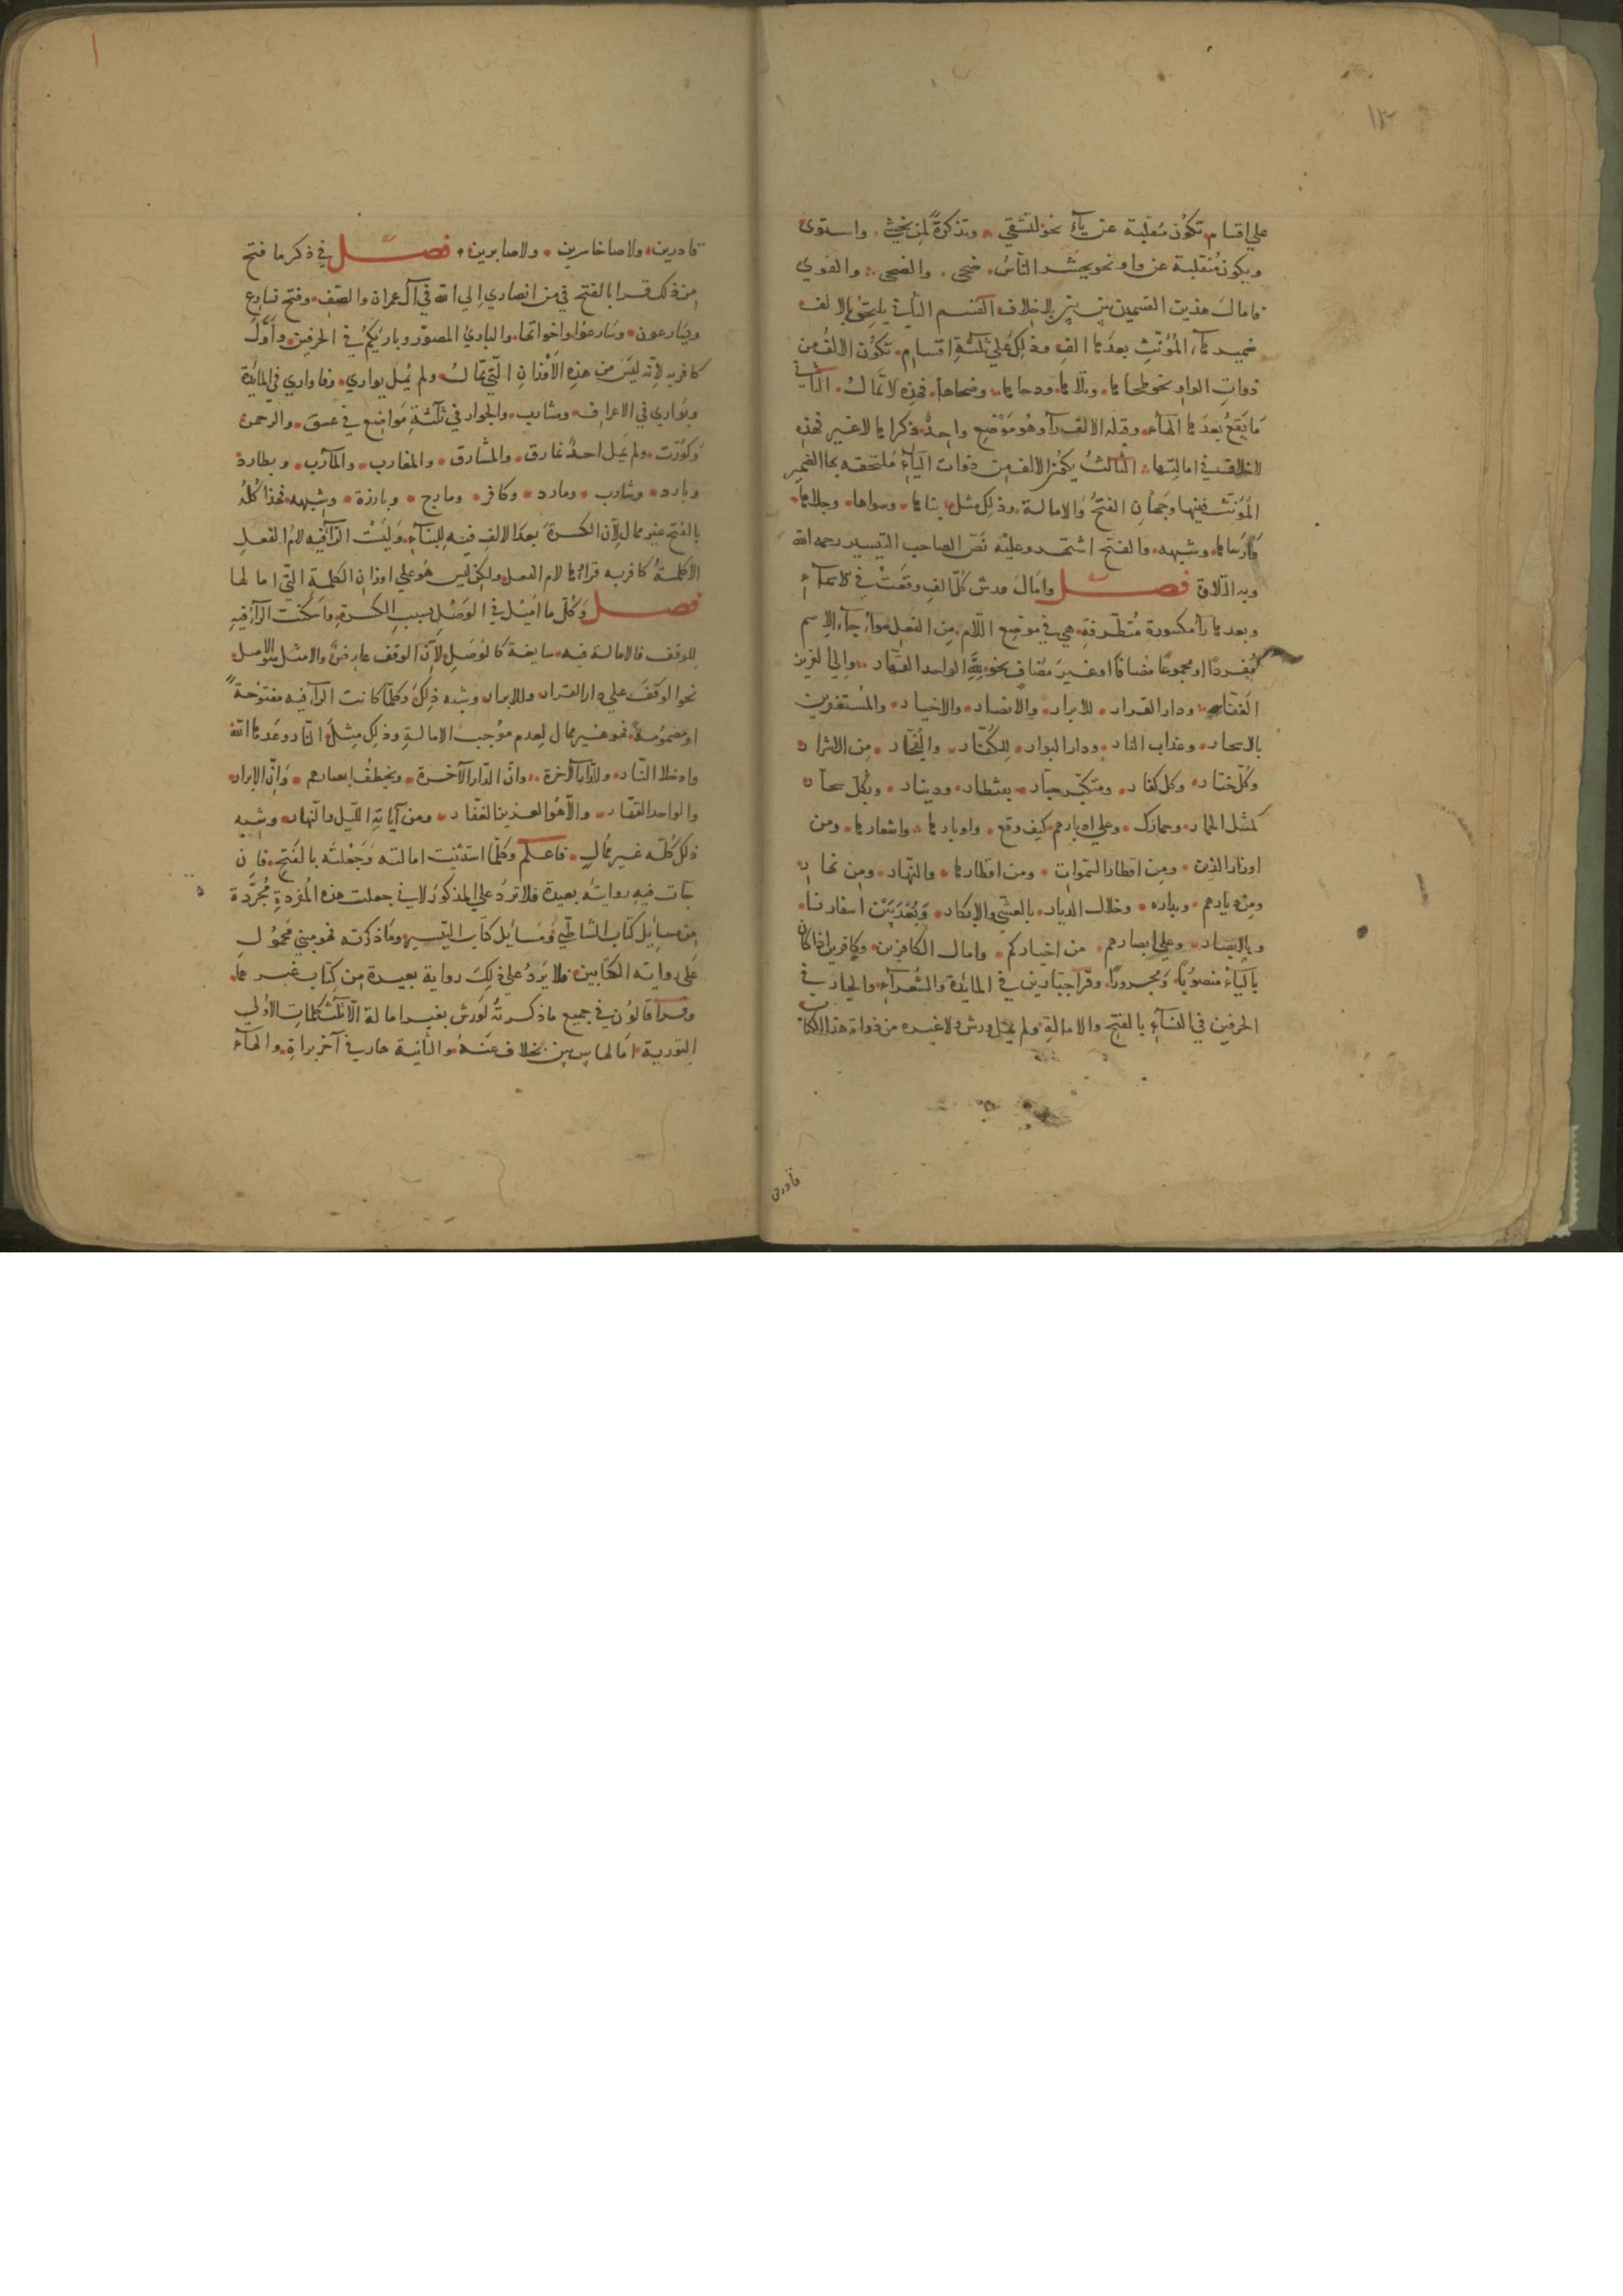 ١٢
على اقسام تكون منقلبة عن يآء نحو لتشقى وتذكرة لمن يخشى واستوى
ويكون منقلبة عن واو نحو يحشر الناس ضحى والضحى والقوى
فامال هذين القسمين بين بين بلا خلاف القسم الثاني يلحق بالالف
ضمير هآء المؤنث بعدها الف وذلك على ثلثة اقسام تكون الالف من
ذوات الواو نحو طحاها وتلاها ودحاها وضحاها فهذه لا تمال الثاني
ما يقع بعدها الهاء وقبله الالف رآء وهو موضع واحد ذكراها لا غير فهذه
لا خلاف في امالتها الثالث يكون الالف من ذوات اليآء فيلتحقه بها الضمير
المؤنث ففيها وجهان الفتح والامالة وذلك مثل بناها وسواها وجلاها
وارساها وشبهه والفتح اشتهر وعليه نص الصاحب التيسير رحمه الله
وبه التلاوة فصل وامال ورش كل الف وقعت في الاسمآء
وبعدها رآء مكسورة متطرفة هي في موضع اللام من الفعل سوآء جآء الاسم
مفردا او مجموعا مضافا او غير مضاف نحو لله الواحد القهار والى العزيز
الغفار ودار القرار للابرار والانصار والاخيار والمستغفرين
بالاسحار وعذاب النار ودار البوار للكفار والفجار من الاشرار
وكل ختار وكل كفار ومتكبر جبار بقنطار ودينار وبكل سحار
كمثل الحمار وحمارك وعلى ادبارهم كيف وقع واوبارها واشعارها ومن
اوزار الذين ومن اقطار السموات ومن اقطارها والنهار ومن نهار
ومن ديارهم ودياره وخلال الديار بالعشي والابكار وبعد بين اسفارنا
وبالابصار وعلى ابصارهم من اخباركم وامال الكافرين وكافرين اذا كان
باليآء منصوبا ومجرورا وقرا جبارين في المائدة والشعرآء والجار في
الحرفين في النسآء بالفتح والامالة ولم يمل ورش ولا غيره من ذوات هذا الباب
قادرين ولا صاخاسرين ولا صابرين فصل في ذكر ما فتح
من ذلك قرا بالفتح في من انصاري الى الله في آل عمران والصف وفتح نسارع
ويسارعون وسارعوا واخواتها والبارئ المصور وبارئكم في الحرفين واول
كافر به لانه ليس من هذه الاوزان التي تمال ولم يمل يواري وفاواري في المائدة
ويواري في الاعراف ومشارب والجوار في ثلثة مواضع في عسق والرحمن
وكورت ولم يمل احد نمارق والمشارق والمغارب والمآرب وبطارد
وبارد وشارب ومارد وكافر ومارج وبارزة وشبهه فهذا كله
بالفتح غير ممال لان الكسرة بعد الالف فيه للبنآء وليست الرآء فيه لام الفعل
الا كلمة كافر به قراوها لام الفعل ولكن ليس هو على اوزان الكلمة التي امالها
فصل وكل ما اميل في الوصل بسبب الكسرة واسكنت الرآء فيه
للوقف فالامالة فيه سايغة كالوصل لان الوقف عارض والامثل هو الاصل
نحو الوقف على دار القرار وللابرار وشبه ذلك وكلما كانت الرآء فيه مفتوحة
او مضمومة فهو غير ممال لعدم موجب الامالة وذلك مثل النار وعدها الله
وادخلا النار وللدار الآخرة وان الدار الآخرة ويخطف ابصارهم وان الابرار
والواحد القهار والا هو العزيز الغفار ومن آياته الليل والنهار وشبه
ذلك كله غير ممال فاعلم وكلما استثنيت امالته وجعلته بالفتح فان
بآت فيه رواية بعيدة فلا ترد على المذكور لاني جعلت هذه المفردة مجردة
من مسايل كتاب الشاطبي ومسايل كتاب التيسير وما ذكرته فهو مبني محمول
على رواية الكتابين فلا يرد على ذلك رواية بعيدة من كتاب غيرهما
وقرآ قالون في جميع ما ذكرته لورش بغير امالة الا ثلث كلمات الاولى
التورية امالها بين بين بخلاف عنه والثانية هار في آخر براة والهآء